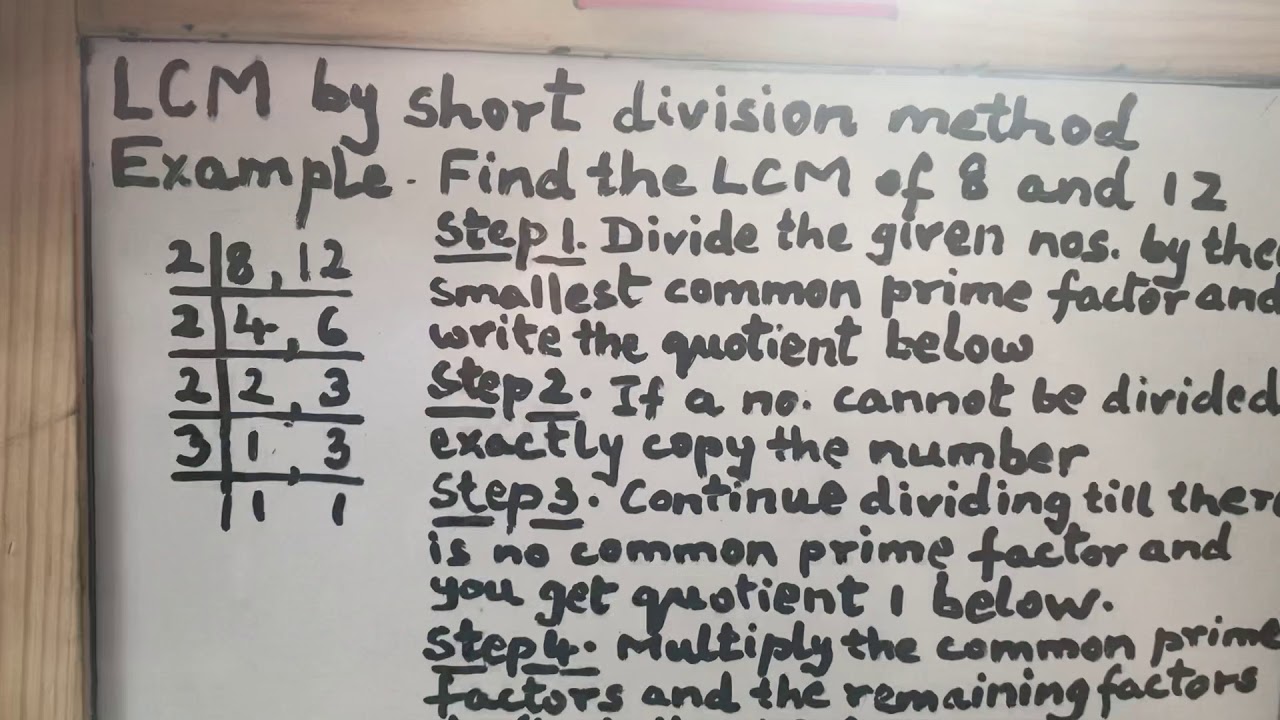 LCM by short division method
Example. Find the LCM of 8 and 12
2 | 8, 12
2 | 4, 6
2 | 2, 3
3 | 1, 3
| 1 1
Step 1. Divide the given nos. by the
smallest common prime factor and
write the quotient below
Step 2. If a no. cannot be divided
exactly copy the number
Step 3. Continue dividing till ther
is no common prime factor and
you get quotient 1 below.
Step 4. Multiply the common prime
factors and the remaining factors